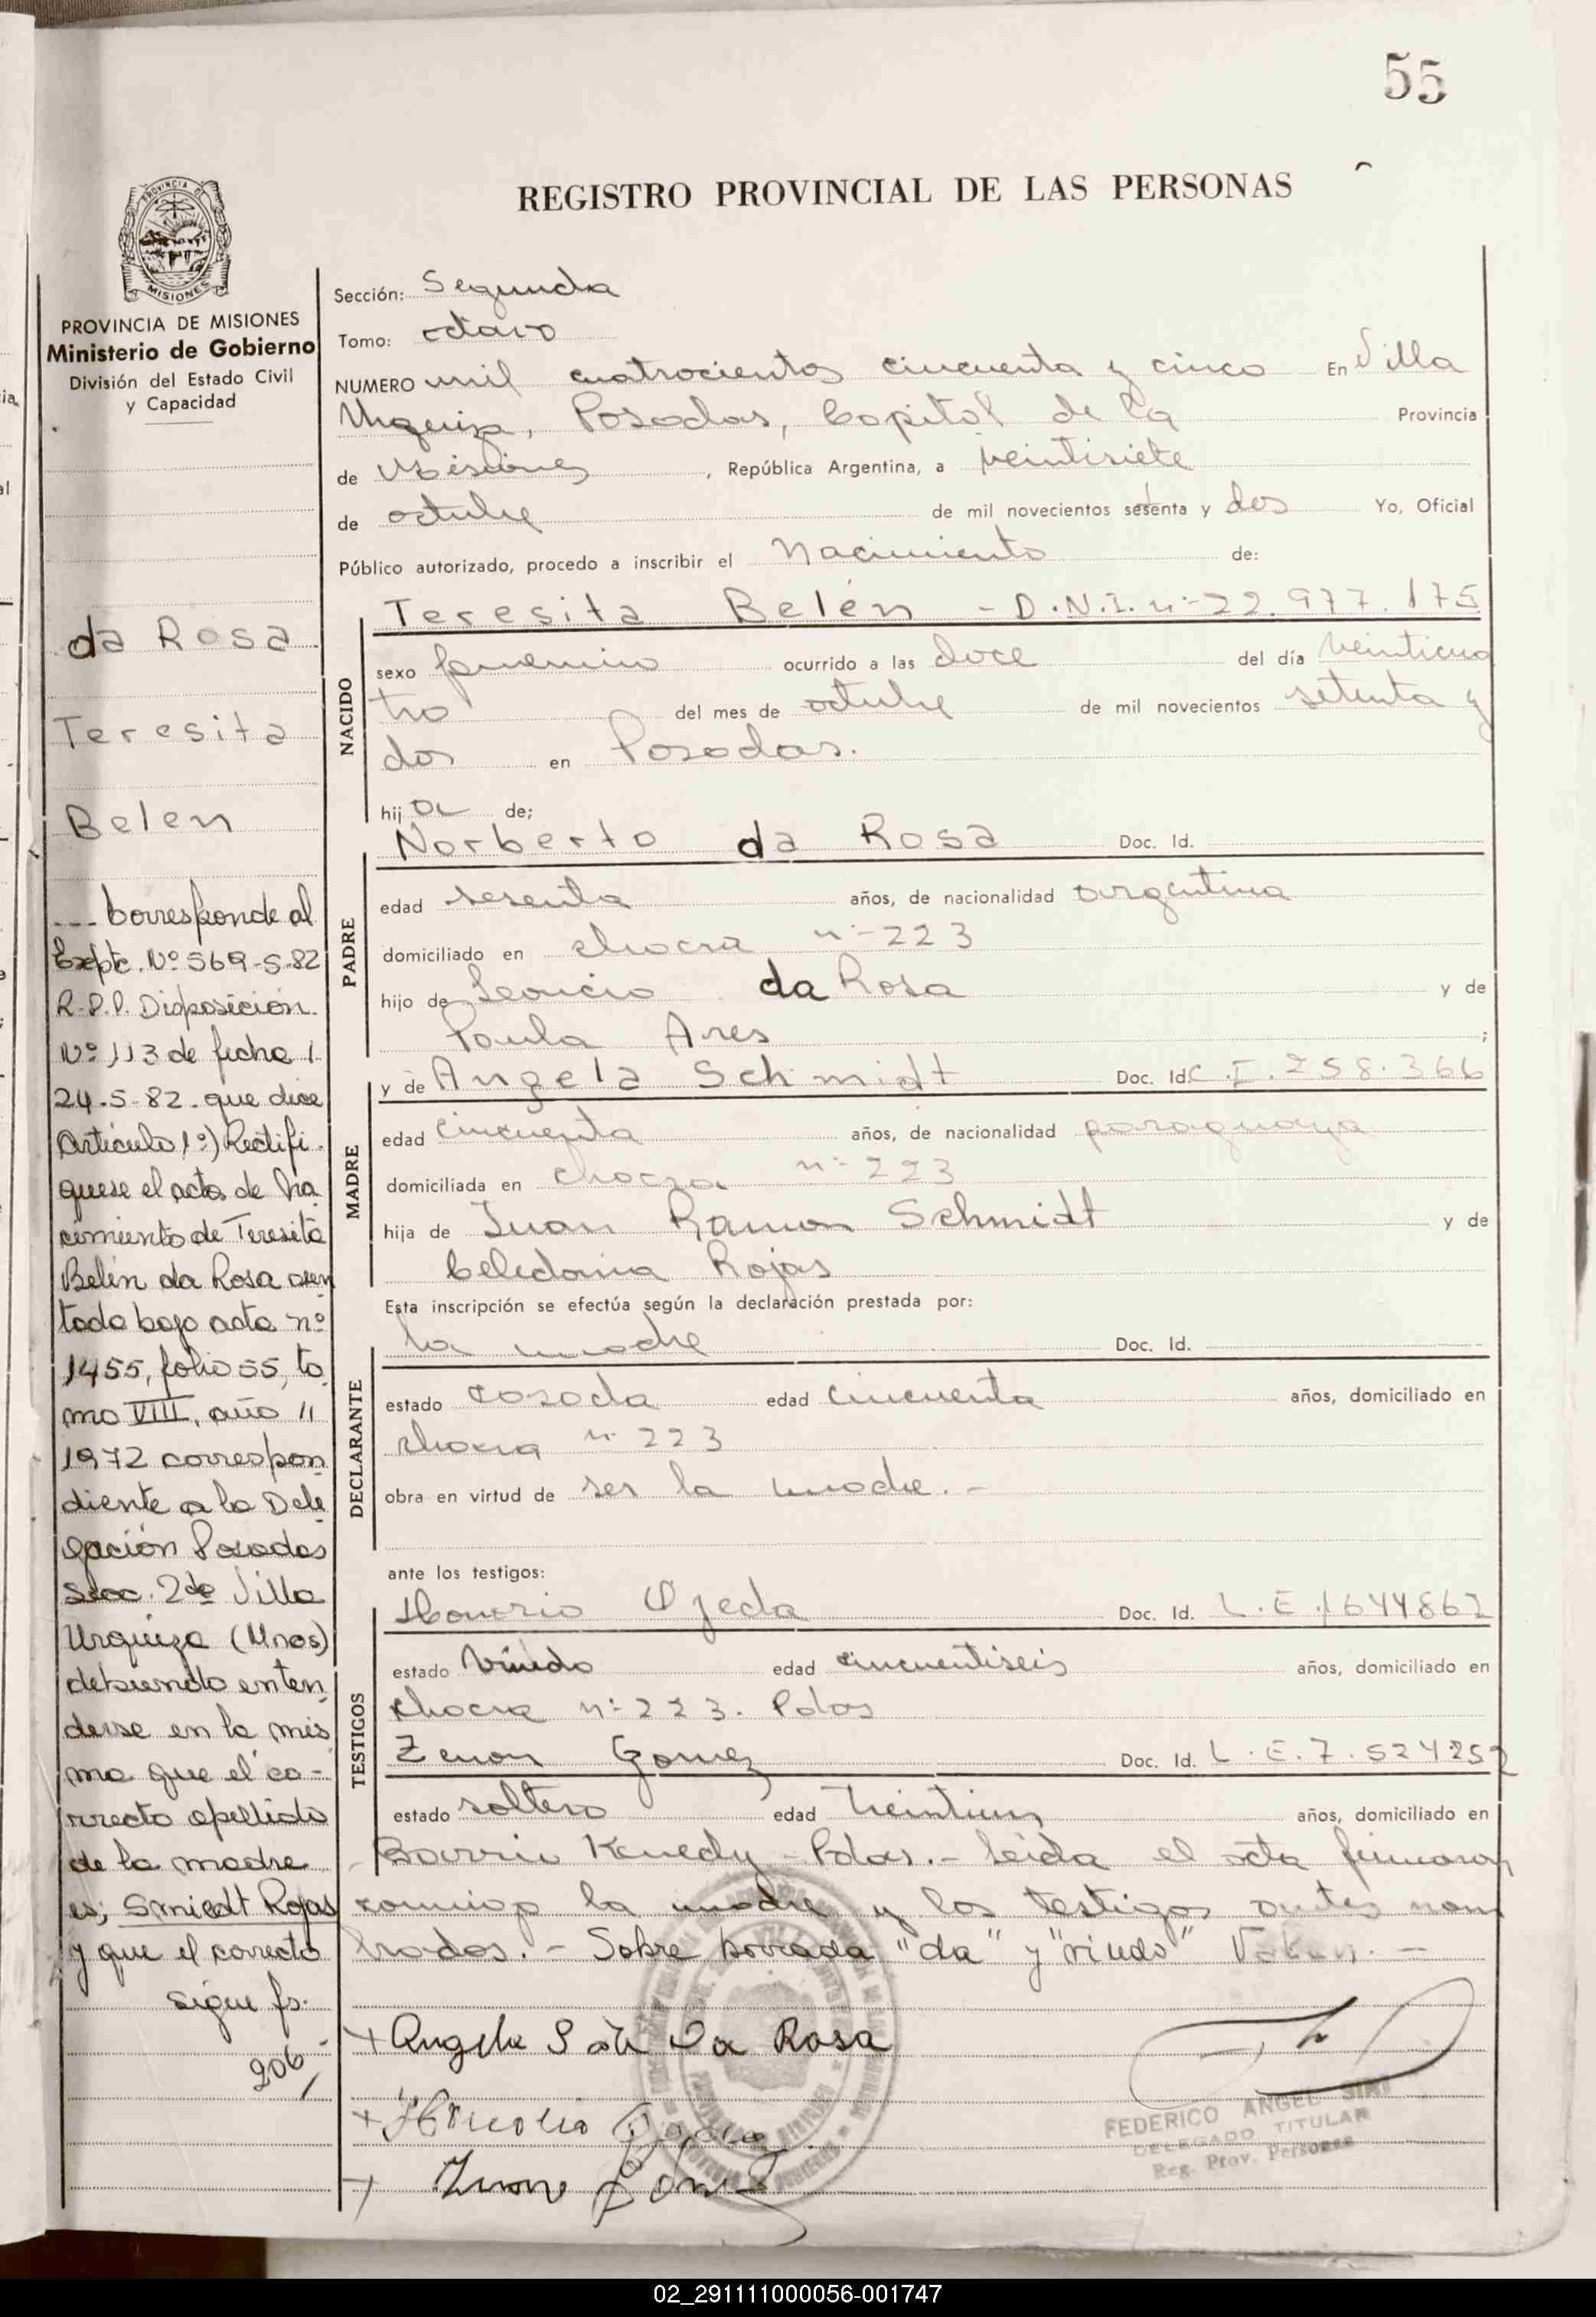 55
REGISTRO PROVINCIAL DE LAS PERSONAS
PROVINCIA DE MISIONES
PROVINCIA DE MISIONES
Ministerio de Gobierno
División del Estado Civil
y Capacidad
da Rosa
Teresita
Belen
--- Corresponde al
Expte. Nº 569-S-82
R.P.P. Disposición
Nº 113 de fecha
24-5-82 que dice
Artículo 1º) Rectifi
quese el acta de na
cimiento de Teresita
Belén da Rosa asen
tada bajo acta nº
1455, folio 55, to
mo VIII, año "
1972 correspon
diente a la Dele
gación Posadas
Secc. 2da Villa
Urquiza (Mnes)
debiendo enten
derse en la mis
ma que el co-
rrecto apellido
de la madre
es; Smiedt Rojas
y que el correcto
sigue fs.
206/
Sección: Segunda
Tomo: octavo
NUMERO mil cuatrocientos cincuenta y cinco En Villa
Urquiza, Posadas, Capital de la Provincia
de Misiones, República Argentina, a veintisiete
de octubre de mil novecientos setenta y dos Yo, Oficial
Público autorizado, procedo a inscribir el Nacimiento de:
NACIDO
Teresita Belén - D.N.I. nº- 22.977.175
sexo femenino ocurrido a las doce del día veinticua
tro del mes de octubre de mil novecientos setenta y
dos en Posadas.
hija de;
PADRE
Norberto da Rosa Doc. Id.
edad sesenta años, de nacionalidad argentina
domiciliado en chacra nº-223
hijo de Leoncio da Rosa y de
Paula Ares ;
MADRE
y de Angela Schmidt Doc. Id. C.I. 258.366
edad cincuenta años, de nacionalidad paraguaya
domiciliada en chacra nº-223
hija de Juan Ramon Schmidt y de
Celedonia Rojas
Esta inscripción se efectúa según la declaración prestada por:
DECLARANTE
la madre Doc. Id.
estado casada edad cincuenta años, domiciliado en
chacra nº 223
obra en virtud de ser la madre.-
ante los testigos:
TESTIGOS
Honorio Ojeda Doc. Id. L.E. 1644862
estado viudo edad cincuentiseis años, domiciliado en
chacra nº-223. Pdas
Zenon Gomez Doc. Id. L.E. 7.524252
estado soltero edad treintiun años, domiciliado en
Barrio Kenedy - Pdas.- Leida el acta firmaron
conmigo la madre y los testigos antes nom
brados.- Sobre borrado "da" y "viudo" Valen.-
+ Angela S de Da Rosa
+ Honorio Ojeda
+
FEDERICO ANGEL
DELEGADO TITULAR
Reg. Prov. Personas
02_291111000056-001747